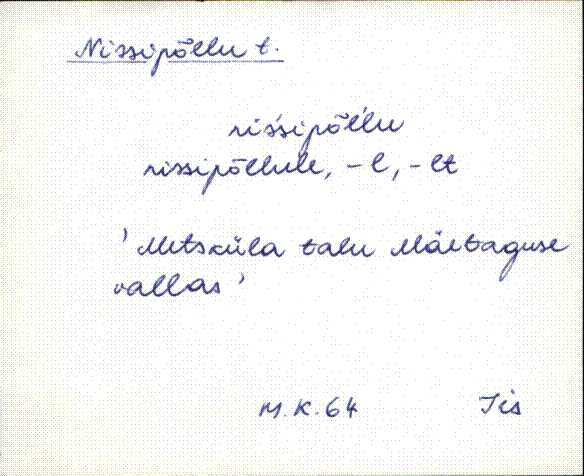 Nissipõllu t.
nis̀sipõl̀lu
nissipõllule, -l, -lt
'Metsküla talu Mäetaguse
vallas'
M.K. 64 Iis